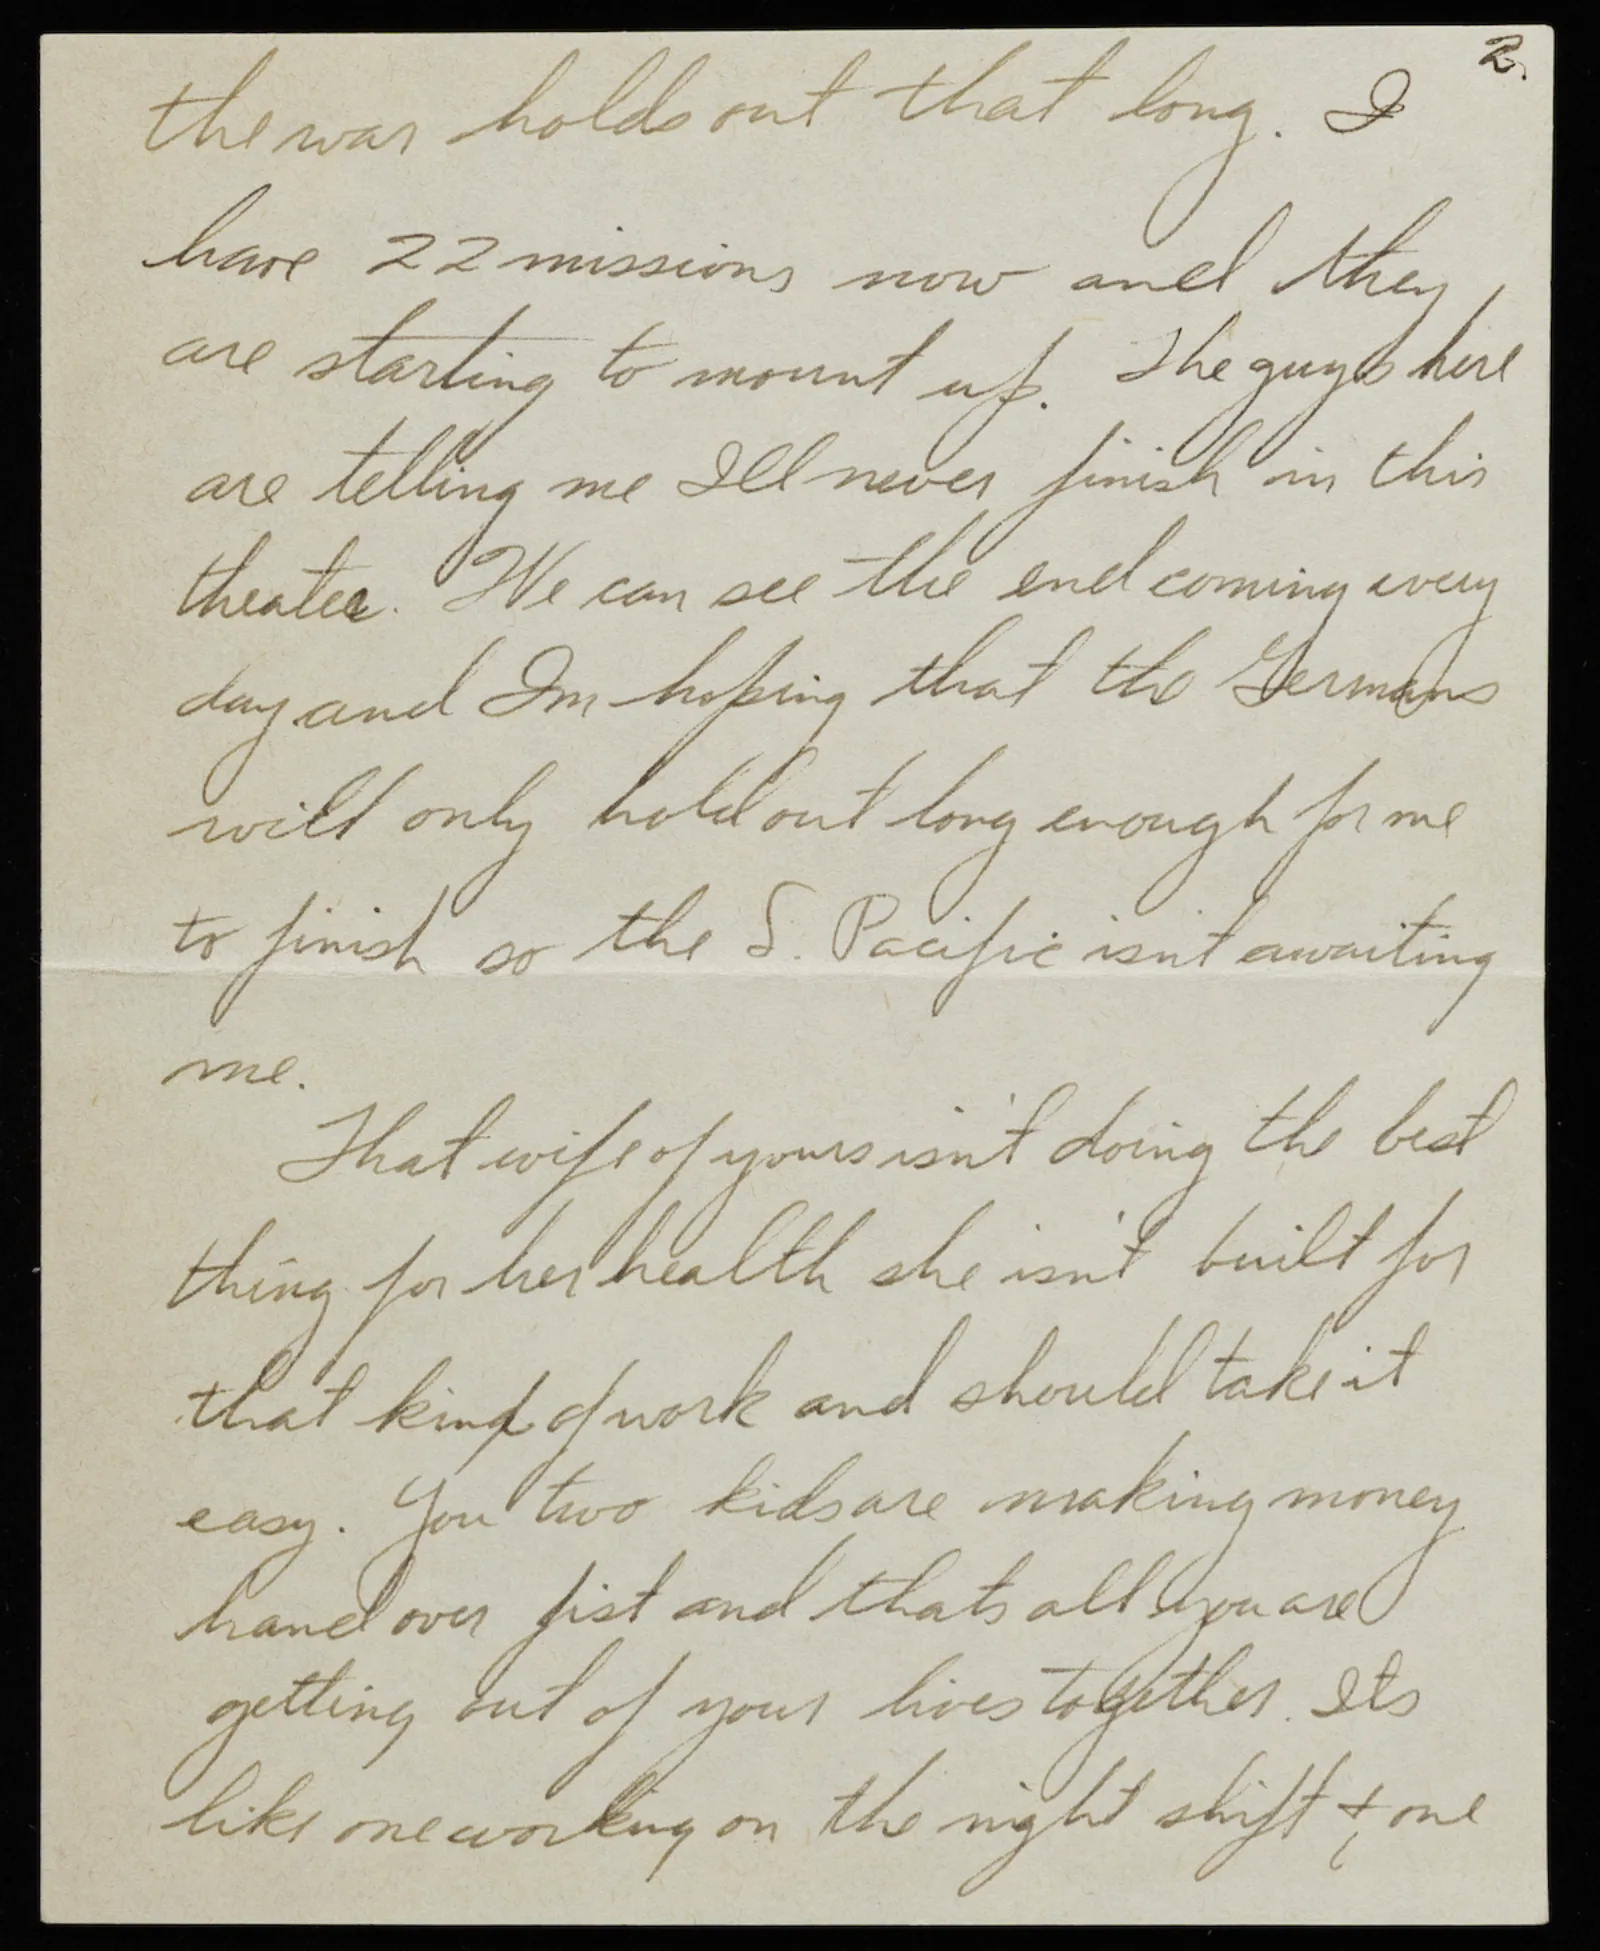 2.
the war holds out that long. I
have 22 missions now and they
are starting to mount up. The guys here
are telling me Ill never finish in this
theater. We can see the end coming every
day and Im hoping that the Germans
will only hold out long enough for me
to finish so the S. Pacific isn't awaiting
me.
That wife of yours isn't doing the best
thing for her health she isn't built for
that kind of work and should take it
easy. You two kids are making money
hand over fist and thats all you are
getting out of your lives together. Its
like one working on the night shift & one